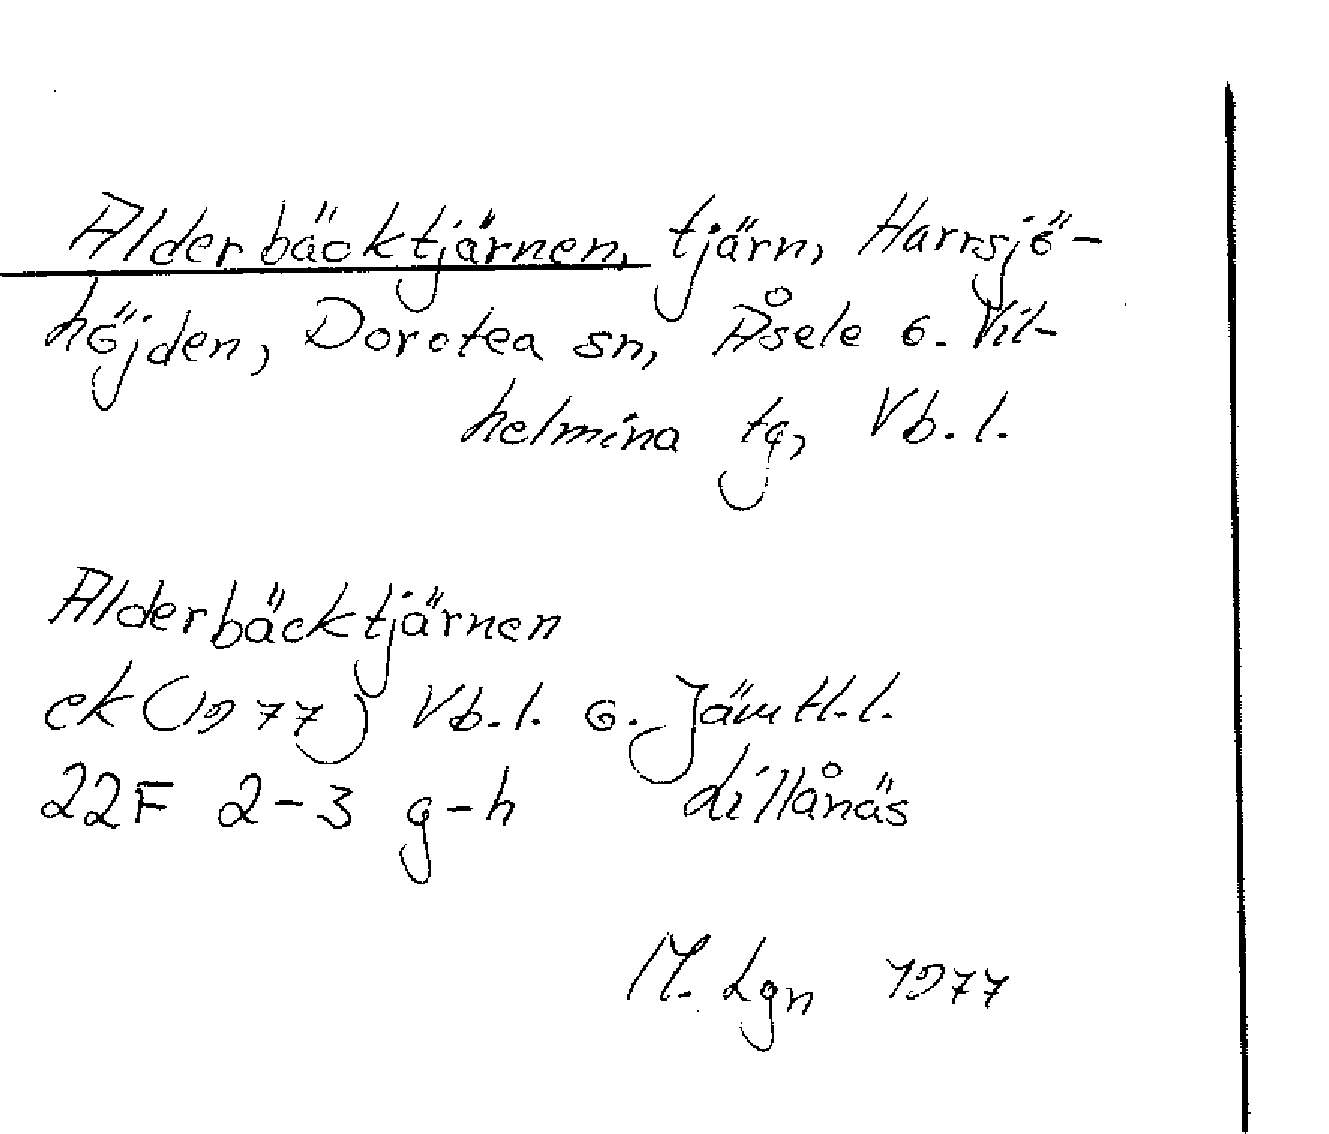 Alderbäcktjärnen, tjärn, Harrsjö-
höjden, Dorotea sn, Åsele o. Vil-
helmina tg, Vb. l.
Alderbäcktjärnen
ek (1977) Vb. l. o. Jämtl. l.
22F 2-3 g-h Lillånäs
M. Lgn 1977